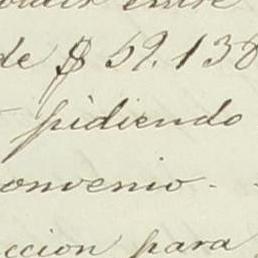 entre
de $ 59.138
pidiendo
convenio.
ccion para